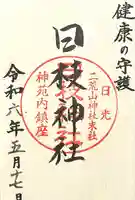 健康の守護
日光
二荒山神社末社
日枝神社
神苑内鎮座
令和六年五月十七日